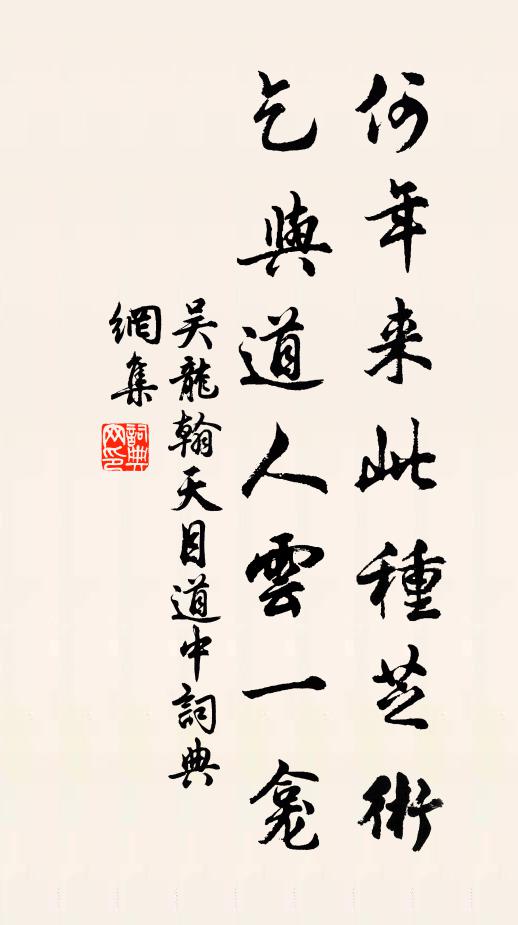 何年来此種芝術
乞與道人雲一龕
吴龍翰天目道中詞典
網集
詞典
网印